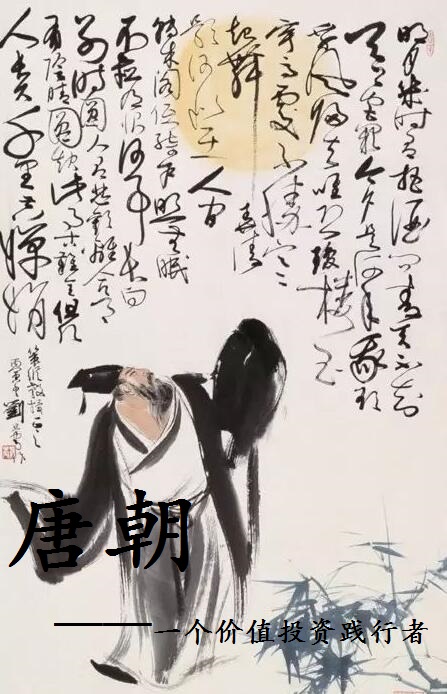 明月幾時有把酒问青天不知
天上宫阙今夕是何年我欲
乘風归去唯恐瓊樓玉
宇高處不勝寒
起舞弄清
影何似在人间
转朱阁低绮户照無眠
不應有恨何事长向
别時圆人有悲歡離合月
有陰晴圆缺此事古難全但願
人长久千里共嬋娟
唐朝
——一个价值投资践行者